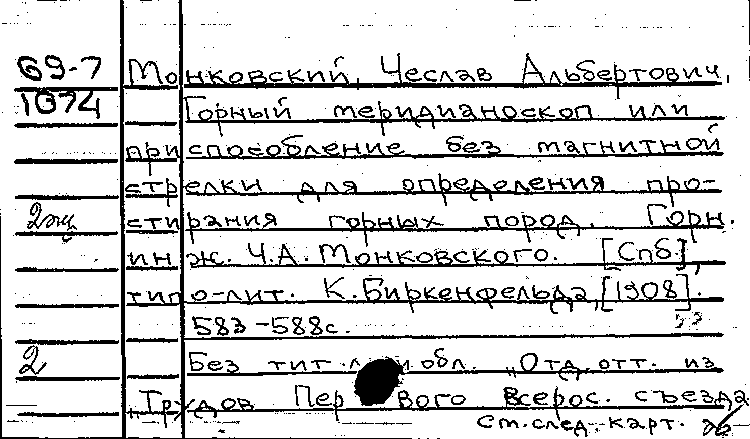 69-7 Монковский, Чеслав Альбертович,
1074 Горный меридианоскоп или
приспособление без магнитной
стрелки для определения про-
2жц стирания горных пород. Горн.
инж. Ч.А. Монковского. [Спб],
типо-лит. К. Биркенфельда, [1908].
583-588с.
2 Без тит. л. и обл. „Отд. отт. из
„Трудов Первого Всерос. съезда
см. след. карт.